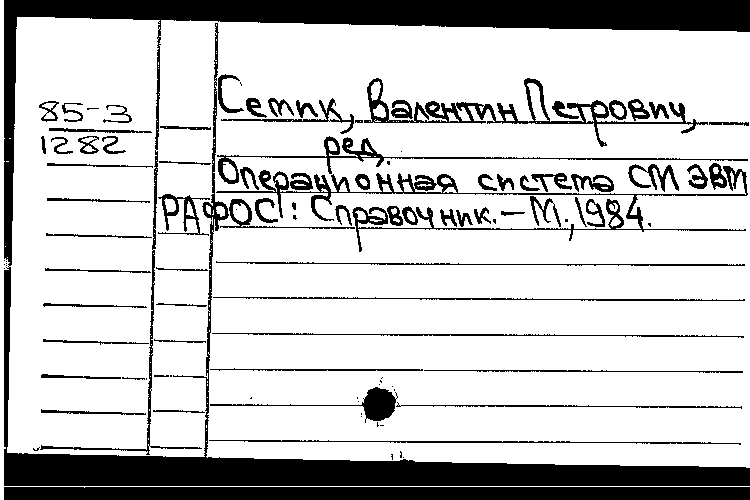 85-3
1282
Семик, Валентин Петрович,
ред.
Операционная система СМ ЭВМ
РАФОС: Справочник. – М., 1984.